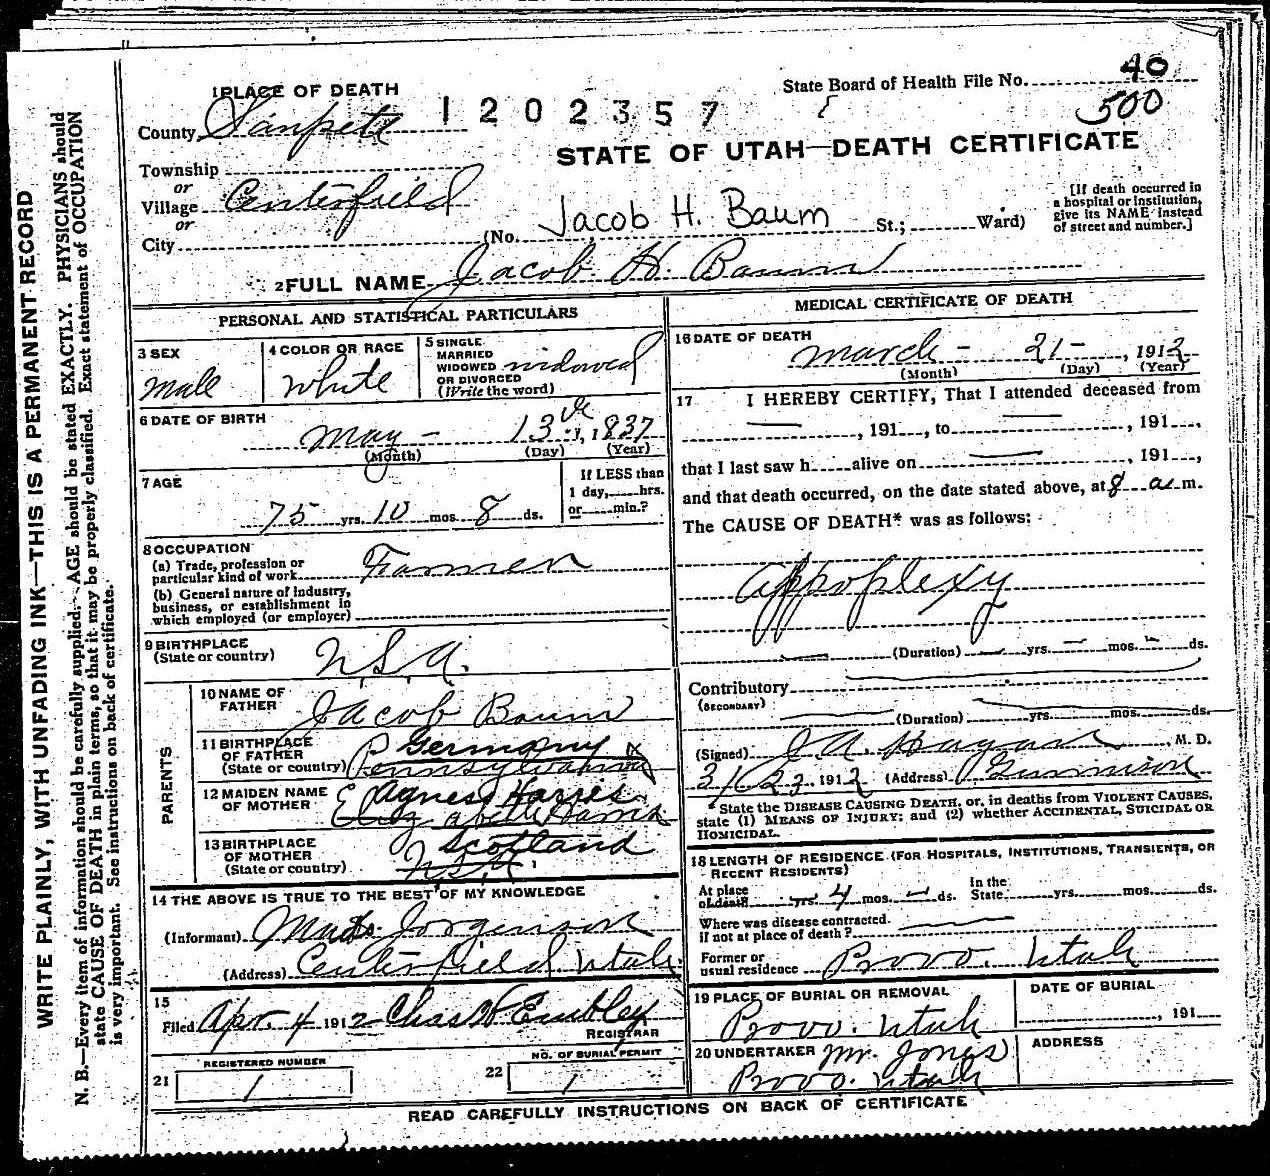 WRITE PLAINLY, WITH UNFADING INK—THIS IS A PERMANENT RECORD
N. B.—Every item of information should be carefully supplied. AGE should be stated EXACTLY. PHYSICIANS should
state CAUSE OF DEATH in plain terms, so that it may be properly classified. Exact statement of OCCUPATION
is very important. See instructions on back of certificate.
State Board of Health File No. 40
500
1 PLACE OF DEATH
1202357
County Sanpete
STATE OF UTAH—DEATH CERTIFICATE
Township
or
Village Centerfield
or
City
(No. Jacob H. Baum St.; Ward)
[If death occurred in
a hospital or institution,
give its NAME instead
of street and number.]
2 FULL NAME Jacob H. Baum
PERSONAL AND STATISTICAL PARTICULARS
3 SEX
Male
4 COLOR OR RACE
White
5 SINGLE
MARRIED
WIDOWED
OR DIVORCED
(Write the word)
widowed
6 DATE OF BIRTH
May – 13, 1837
(Month) (Day) (Year)
7 AGE
75 yrs. 10 mos. 8 ds.
If LESS than
1 day, hrs.
or min.?
8 OCCUPATION
(a) Trade, profession or
particular kind of work Farmer
(b) General nature of Industry,
business, or establishment in
which employed (or employer)
9 BIRTHPLACE
(State or country)
PARENTS
10 NAME OF
FATHER
Jacob Baum
11 BIRTHPLACE
OF FATHER
(State or country)
Germany
Pennsylvania
12 MAIDEN NAME
OF MOTHER
Agnes Harris
13 BIRTHPLACE
OF MOTHER
(State or country)
Scotland
14 THE ABOVE IS TRUE TO THE BEST OF MY KNOWLEDGE
(Informant) Mads Jorgenson
(Address) Centerfield Utah
15
Filed Apr. 4 1912 Chas W Embley
REGISTRAR
REGISTERED NUMBER
21 1
NO. OF BURIAL PERMIT
22 1
MEDICAL CERTIFICATE OF DEATH
16 DATE OF DEATH
March – 21 – , 1912
(Month) (Day) (Year)
17 I HEREBY CERTIFY, That I attended deceased from
, 191 , to , 191 ,
that I last saw h alive on , 191 ,
and that death occurred, on the date stated above, at 8 a m.
The CAUSE OF DEATH* was as follows:
Appoplexy
(Duration) yrs. mos. ds.
Contributory
(SECONDARY)
(Duration) yrs. mos. ds.
(Signed) J A Hagan , M. D.
3/23, 1912 (Address) Gunnison
*State the DISEASE CAUSING DEATH, or, in deaths from VIOLENT CAUSES,
state (1) MEANS OF INJURY; and (2) whether ACCIDENTAL, SUICIDAL OR
HOMICIDAL.
18 LENGTH OF RESIDENCE (FOR HOSPITALS, INSTITUTIONS, TRANSIENTS, OR
RECENT RESIDENTS)
At place
of death yrs. 4 mos. ds.
In the
State yrs. mos. ds.
Where was disease contracted
if not at place of death?
Former or
usual residence Provo. Utah
19 PLACE OF BURIAL OR REMOVAL
Provo. Utah
DATE OF BURIAL
, 191
20 UNDERTAKER Mr. Jones
Provo. Utah
ADDRESS
READ CAREFULLY INSTRUCTIONS ON BACK OF CERTIFICATE